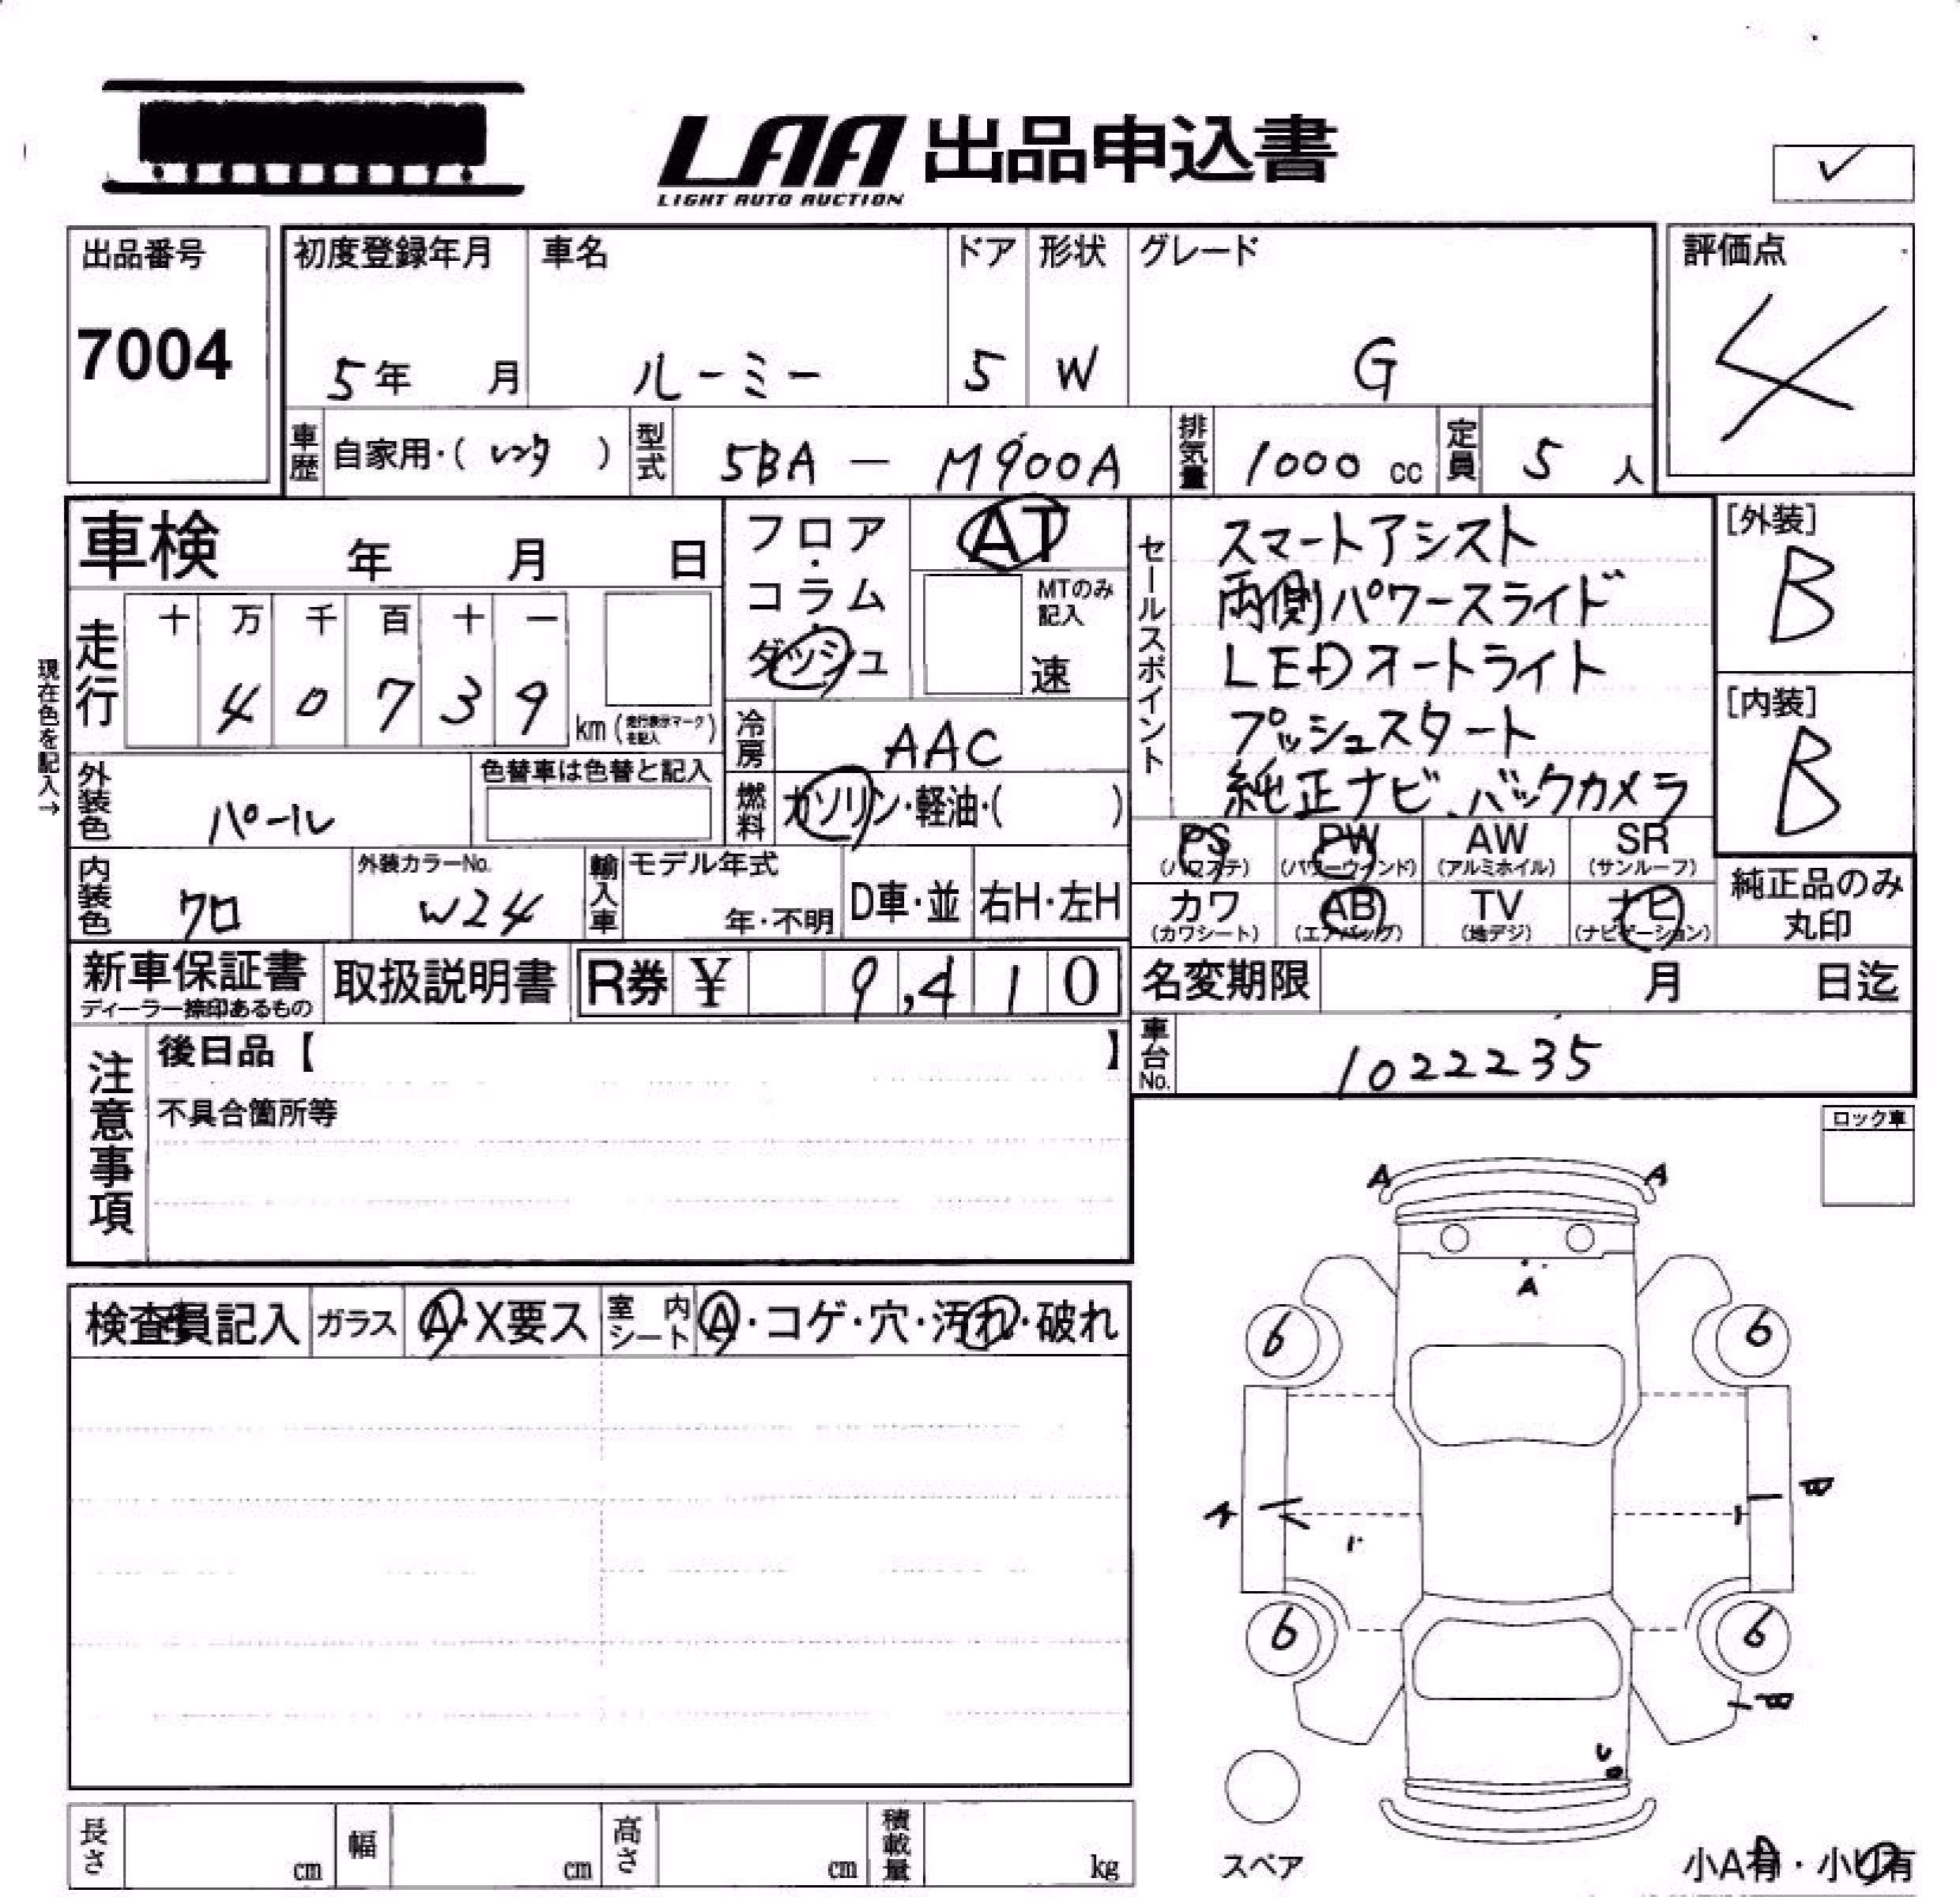 LAA 出品申込書
LIGHT AUTO AUCTION
✓
出品番号
7004
初度登録年月
5年 月
車名
ルーミー
ドア
5
形状
W
グレード
G
評価点
4
車歴
自家用・(レンタ)
型式
5BA - M900A
排気量
1000 cc
定員
5 人
車検 年 月 日
走行
十 万 千 百 十 一
4 0 7 3 9
km (走行表示マークを記入)
現在色を記入→
フロア・コラム・ダッシュ
AT
MTのみ記入
速
冷房
AAC
燃料
ガソリン・軽油・( )
セールスポイント
スマートアシスト
両側パワースライド
LEDオートライト
プッシュスタート
純正ナビ、バックカメラ
[外装]
B
[内装]
B
外装色
パール
色替車は色替と記入
内装色
クロ
外装カラーNo.
W24
輸入車
モデル年式
年・不明
D車・並
右H・左H
PS
(パワステ)
PW
(パワーウィンド)
AW
(アルミホイル)
SR
(サンルーフ)
カワ
(カワシート)
AB
(エアバッグ)
TV
(地デジ)
ナビ
(ナビゲーション)
純正品のみ
丸印
新車保証書
ディーラー捺印あるもの
取扱説明書
R券 ¥ 9,410
名変期限 月 日迄
車台No.
1022235
注意事項
後日品【 】
不具合箇所等
ロック車
検査員記入
ガラス
A・X要ス
室内シート
A・コゲ・穴・汚れ・破れ
A A
A
6 6
6 6
スペア
小A有・小U有
長さ cm
幅 cm
高さ cm
積載量 kg